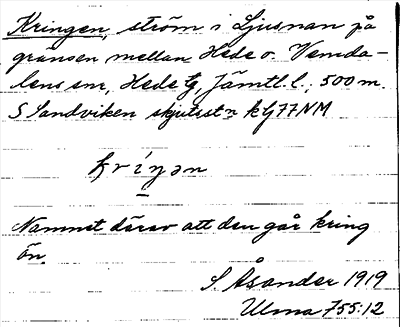 Kringen, ström i Ljusnan på
gränsen mellan Hede o. Vemda-
lens snr, Hede tg, Jämtl. l.; 500 m.
S Sandviken skjutsstn kG77NM
kríŋən
Namnet därav att den går kring
ön.
S. Åsander 1919
Ulma 755:12